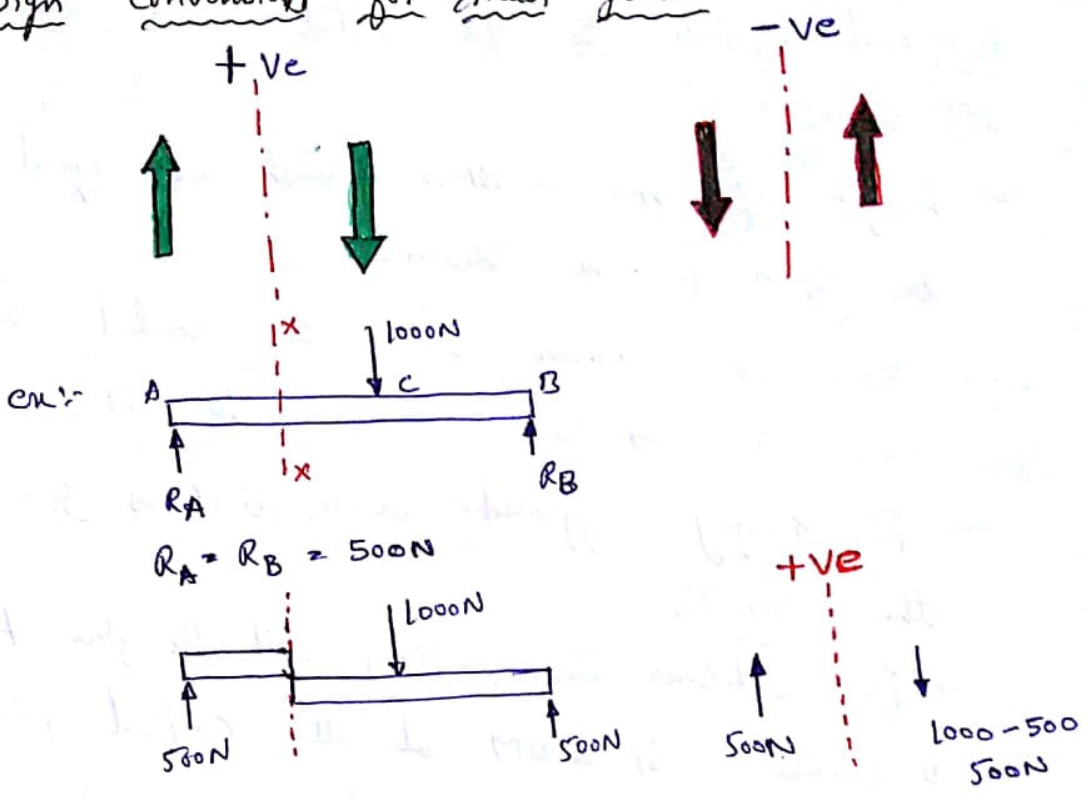 Sign Conventions for shear force
+ ve
- ve
x
1000N
ex:-
A
C
B
x
RA
RB
RA = RB = 500N
+ve
1000N
500N
500N
500N
1000-500
500N